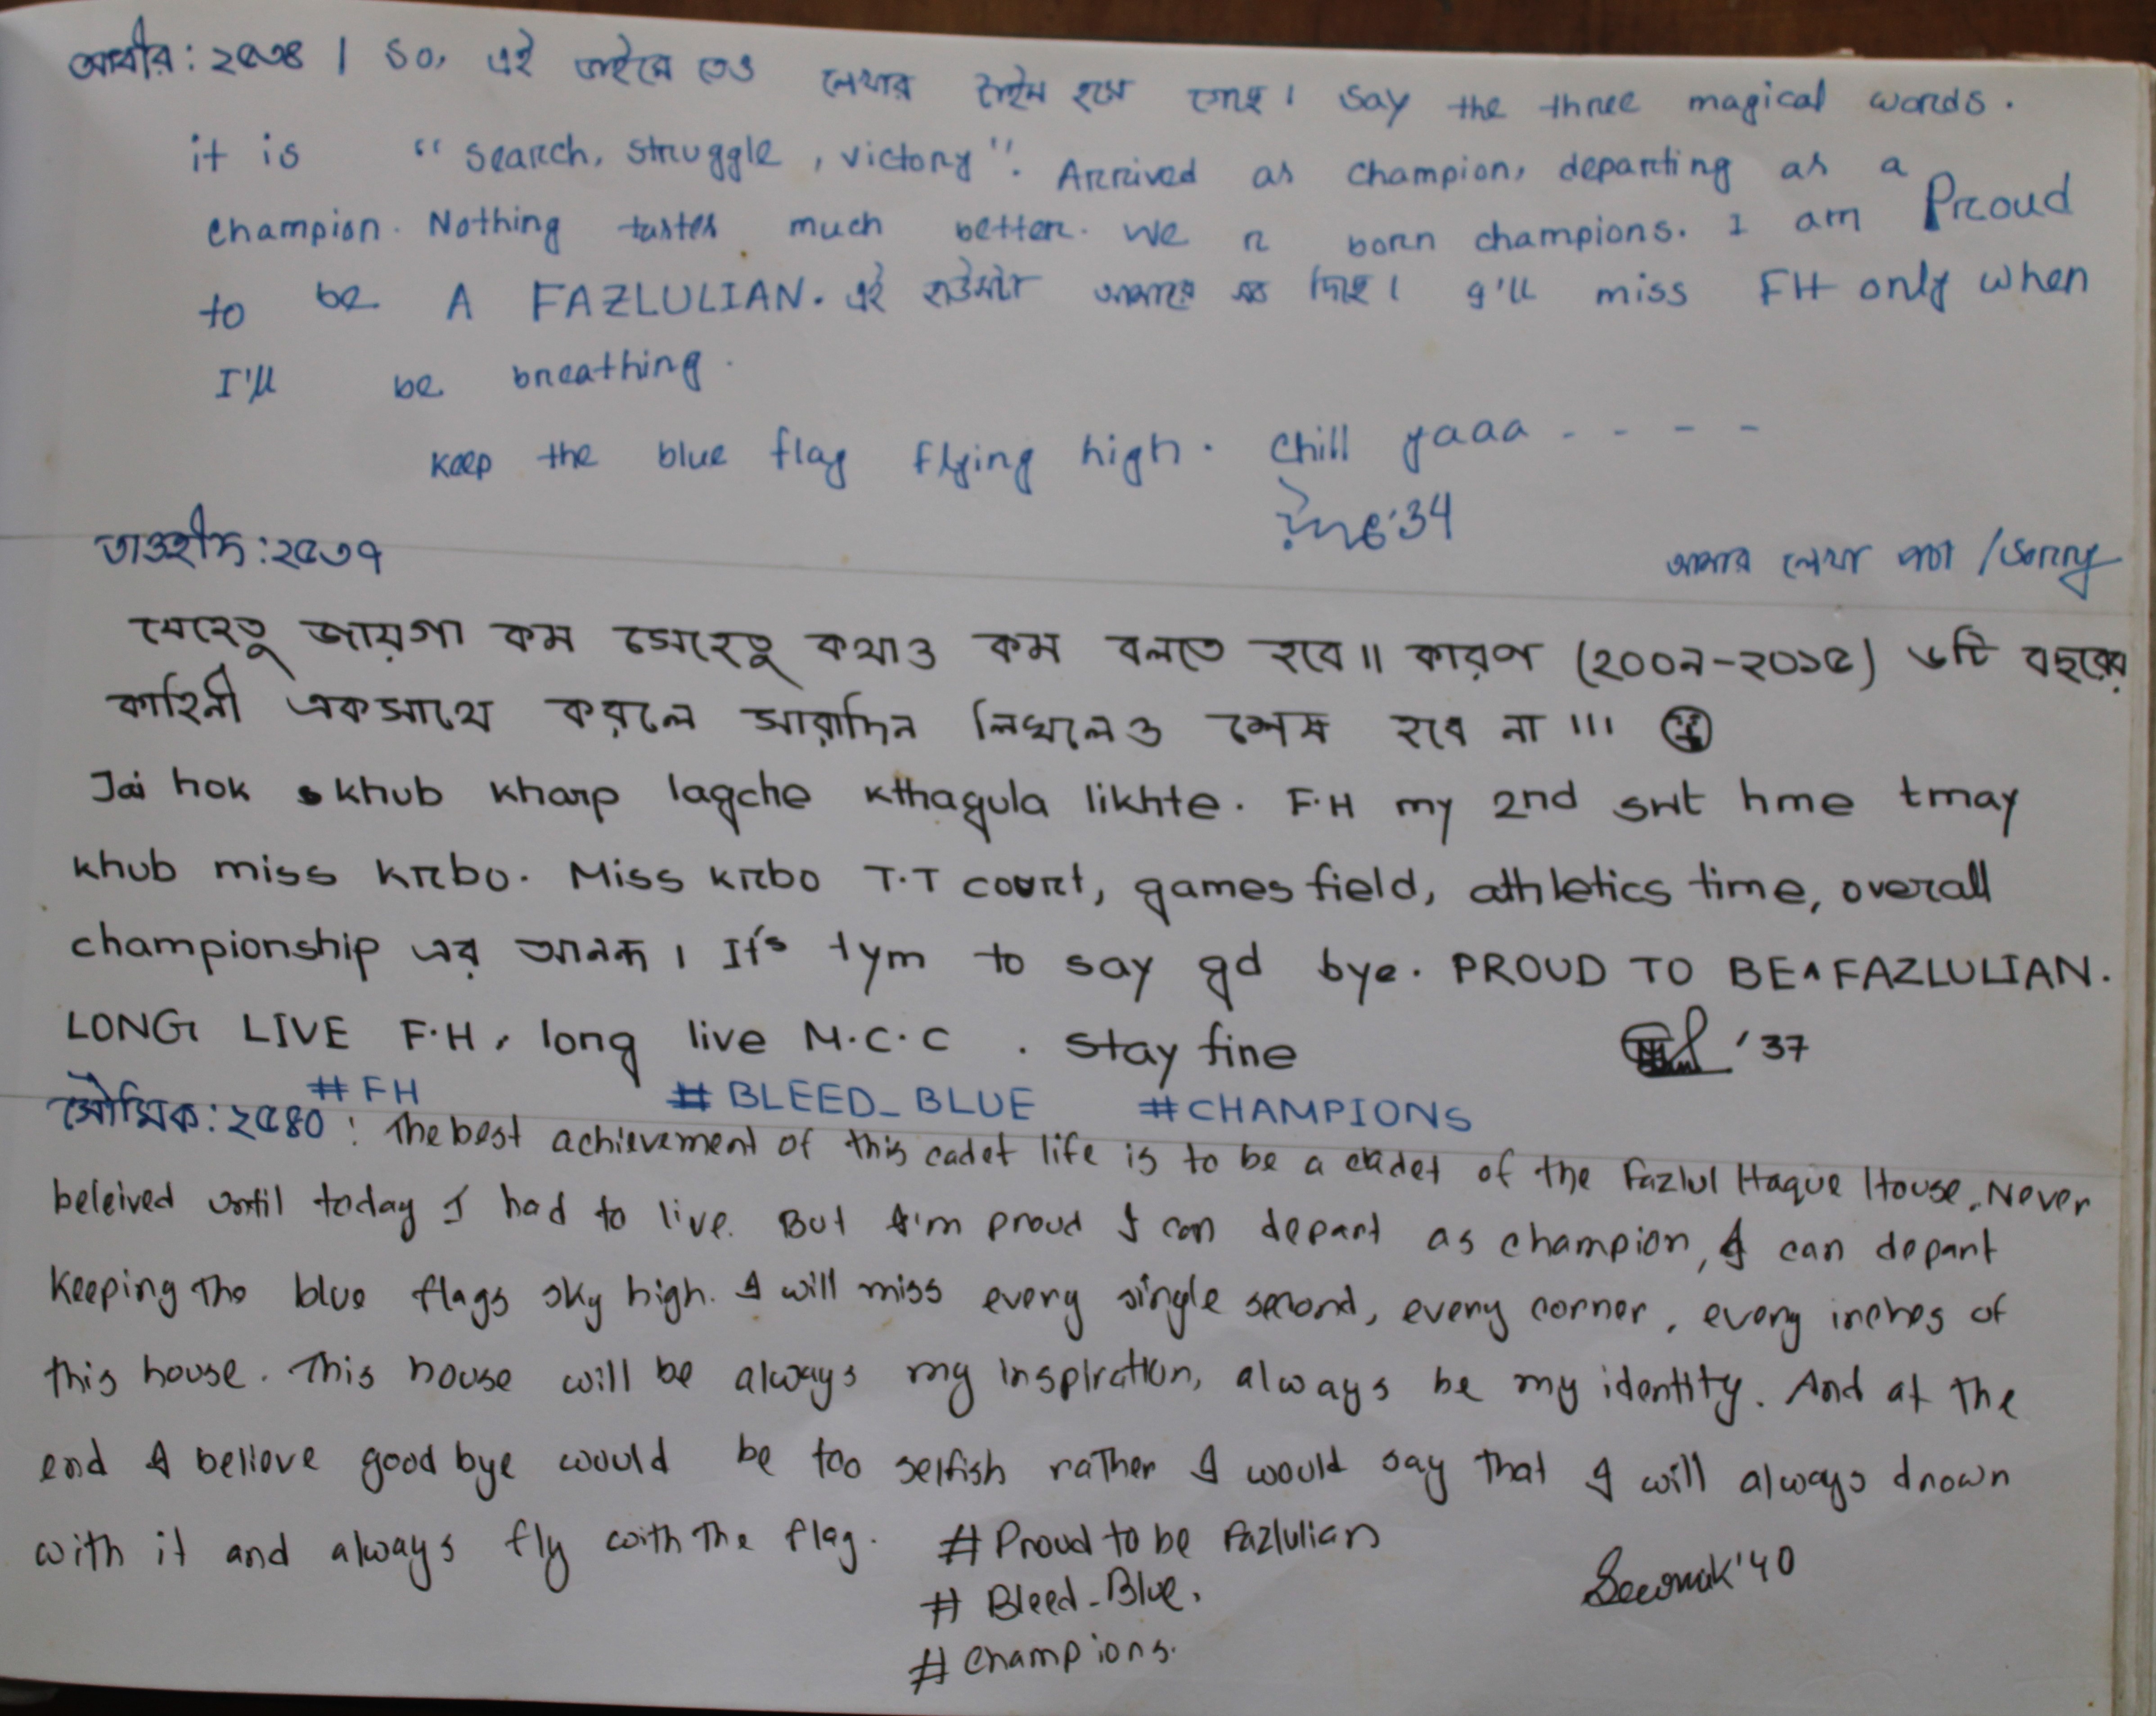 আবীর: ২৫৩৪ | So, এই ডাইরে তেও লেখার টাইম হয়ে গেছে। Say the three magical words.
it is "search, struggle, victory". Arrived as champion, departing as a
champion. Nothing tastes much better. We r born champions. I am Proud
to be A FAZLULIAN. এই হাউসটা আমারে সব দিছে। I'll miss FH only when
I'll be breathing.
Keep the blue flag flying high. Chill yaaa - - - -
'34
তাওহীদ: ২৫৩৭
আমার লেখা পচা / Sorry
যেহেতু জায়গা কম সেহেতু কথাও কম বলতে হবে॥ কারণ (২০০৯-২০১৫) ৬টি বছরের
কাহিনী একসাথে করলে সারাদিন লিখলেও শেষ হবে না !!!
Jai hok khub kharp lagche kthagula likhte. F.H my 2nd swt hme tmay
khub miss krbo. Miss krbo T.T court, games field, athletics time, overall
championship এর আনন্দ। It's tym to say gd bye. PROUD TO BE A FAZLULIAN.
LONG LIVE F.H, long live M.C.C. stay fine
'37
#FH #BLEED_BLUE #CHAMPIONS
সৌমিক: ২৫৪০ : The best achievement of this cadet life is to be a cadet of the Fazlul Haque House. Never
beleived until today I had to live. But I'm proud I can depart as champion, I can depart
keeping the blue flags sky high. I will miss every single second, every corner, every inches of
this house. This house will be always my inspiration, always be my identity. And at the
end I believe good bye would be too selfish rather I would say that I will always drown
with it and always fly with the flag. # Proud to be Fazlulian
# Bleed_Blue.
# Champions.
Sowmik '40